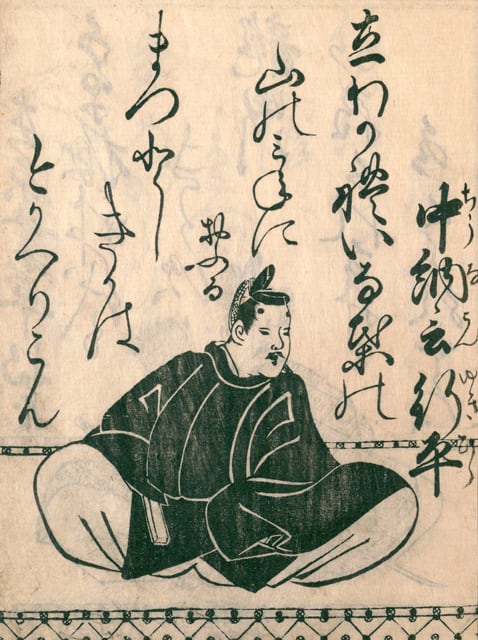 中納言行平
ちうなごんゆきひら
立わかれいなばの
山のみねに
おふる
まつとし
きかは
今かへりこん